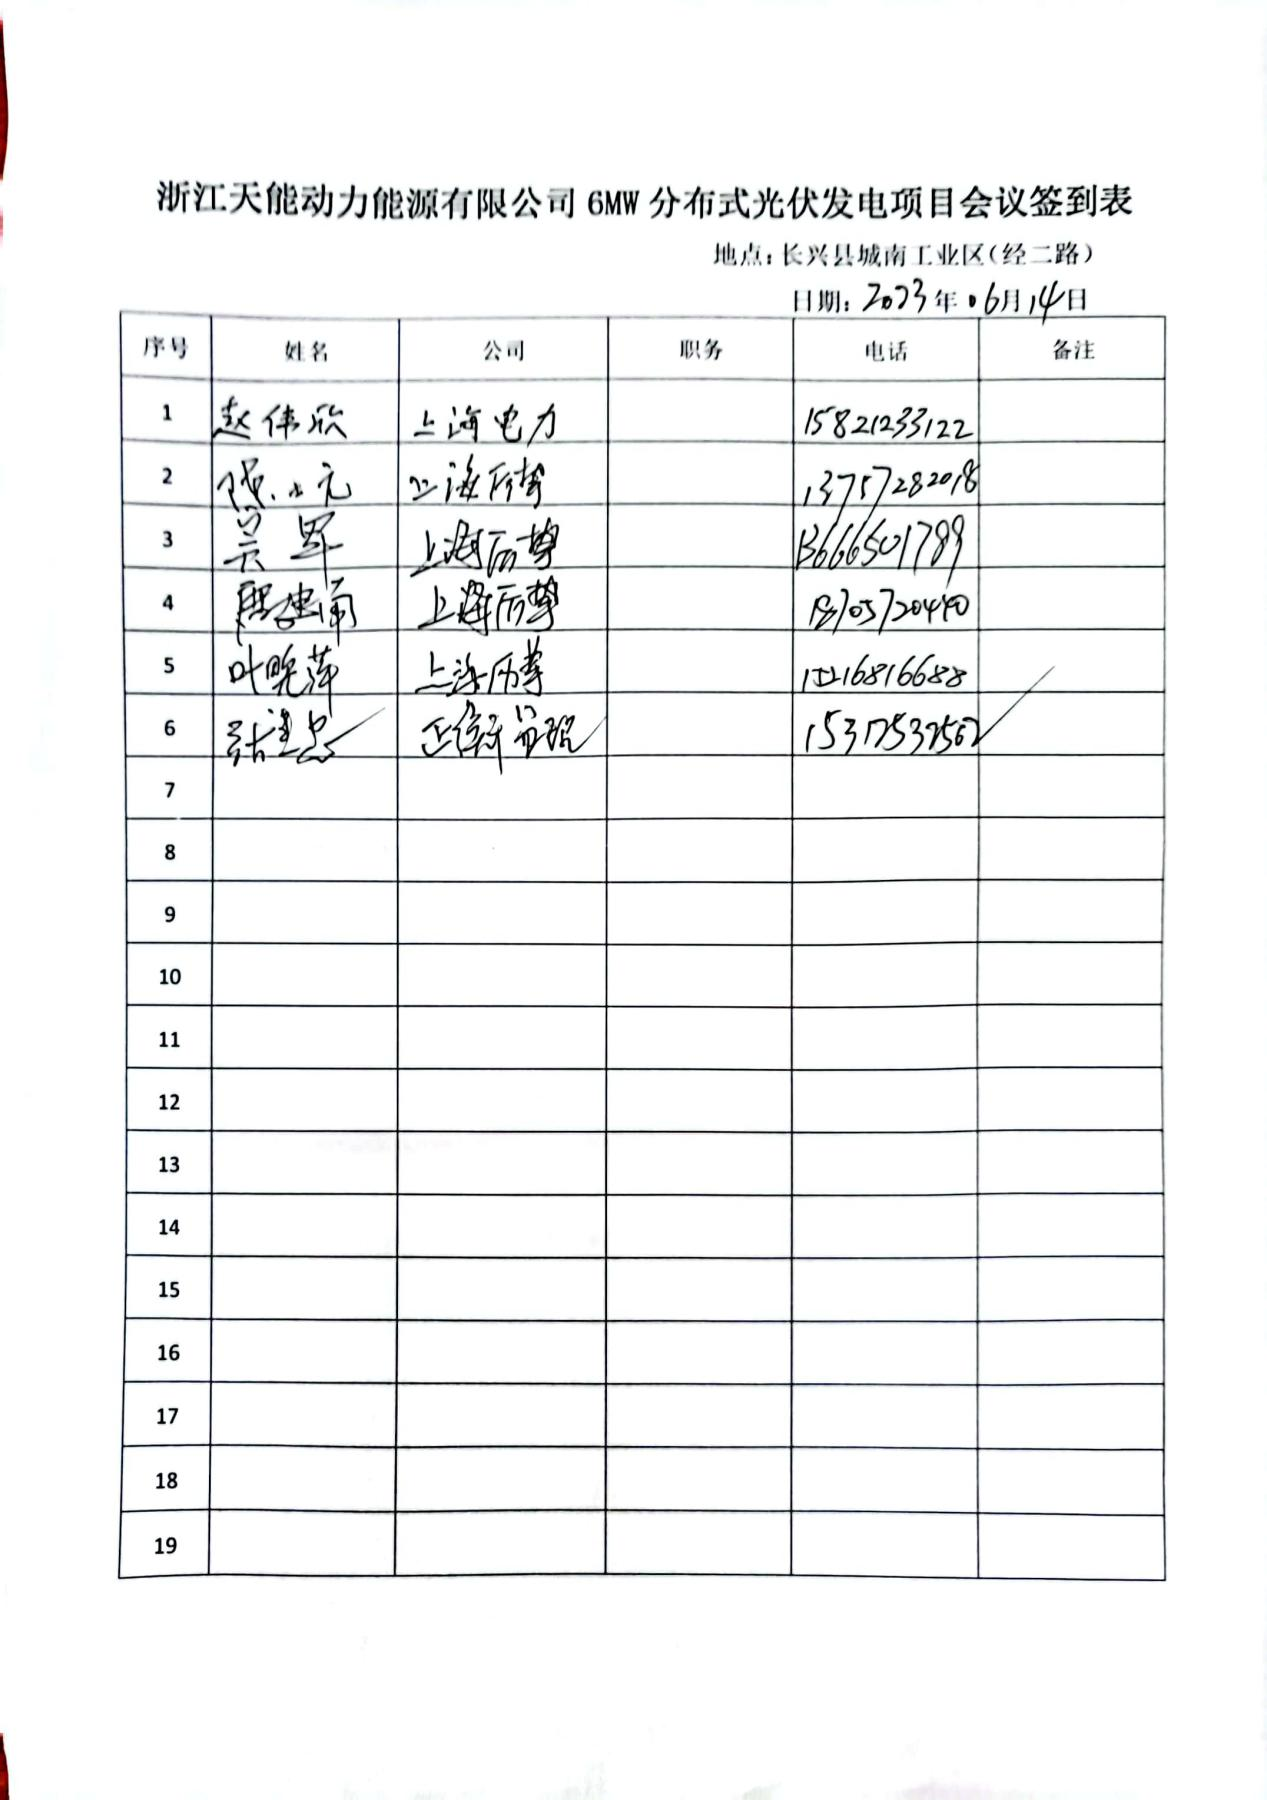 浙江天能动力能源有限公司 6MW 分布式光伏发电项目会议签到表
地点：长兴县城南工业区（经二路）
日期：2023年06月14日
序号 姓名 公司 职务 电话 备注
1 赵伟欣 上海电力 15821233122
2 陈小元 上海后尊 13757282018
3 吴军 上海后尊 13666501789
4 上海后尊 18705720440
5 叶晓萍 上海后尊
6 张建忠
7
8
9
10
11
12
13
14
15
16
17
18
19